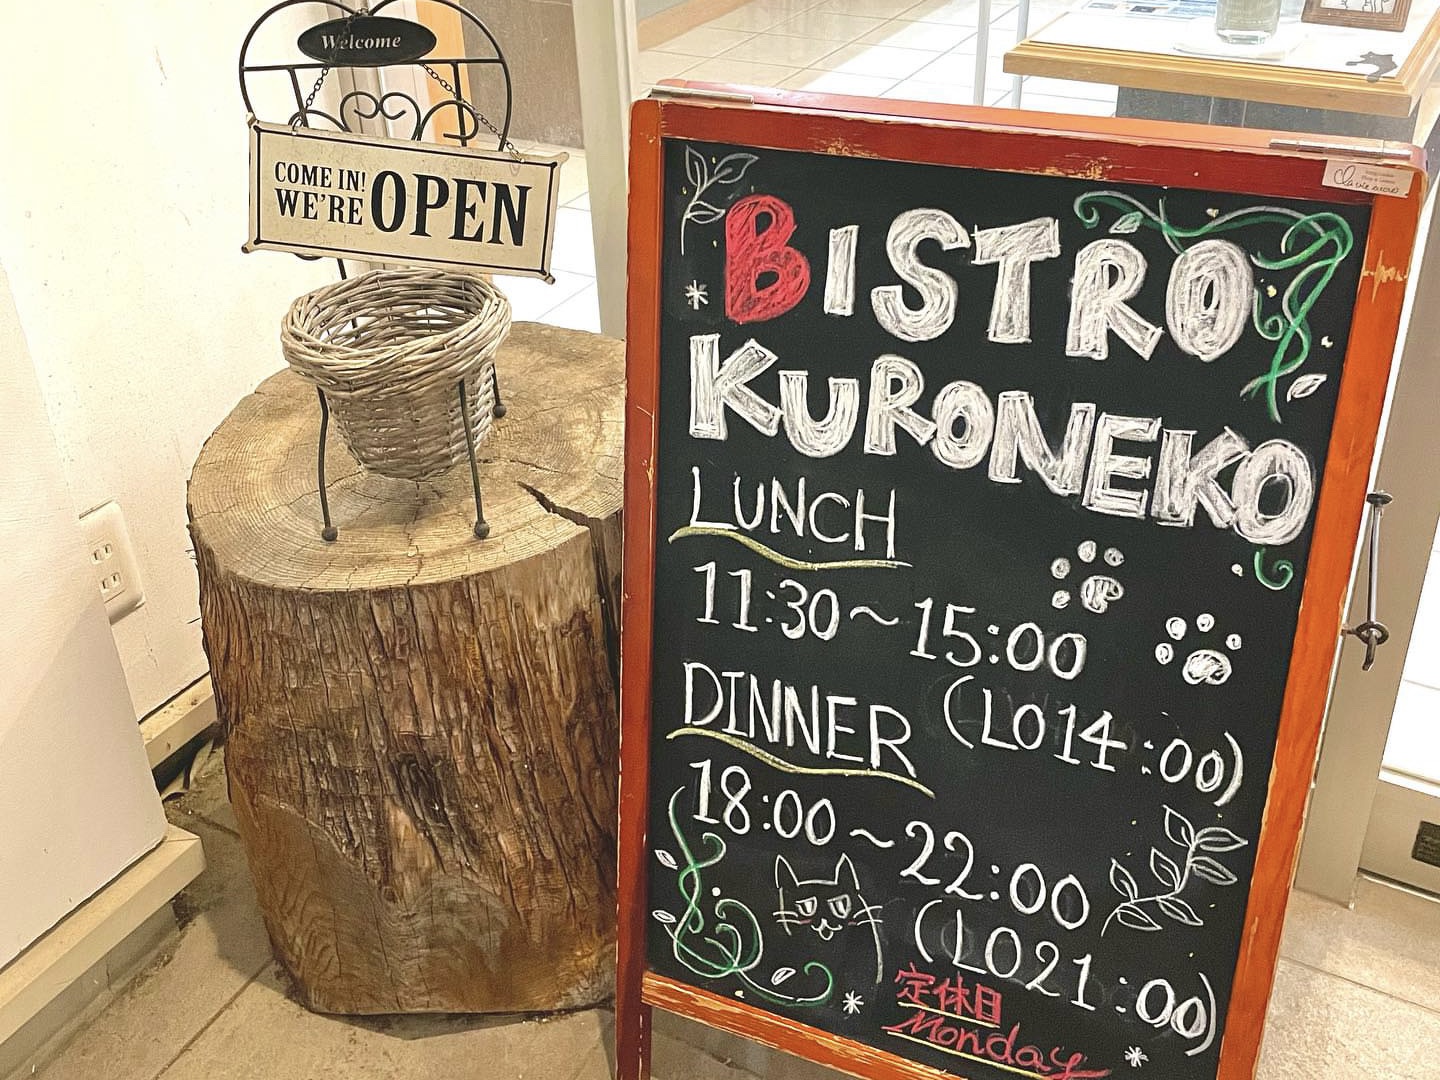 Welcome
COME IN!
WE'RE OPEN
BISTRO
KURONEKO
LUNCH
11:30～15:00
(LO14:00)
DINNER
18:00～22:00
(LO21:00)
定休日
Monday